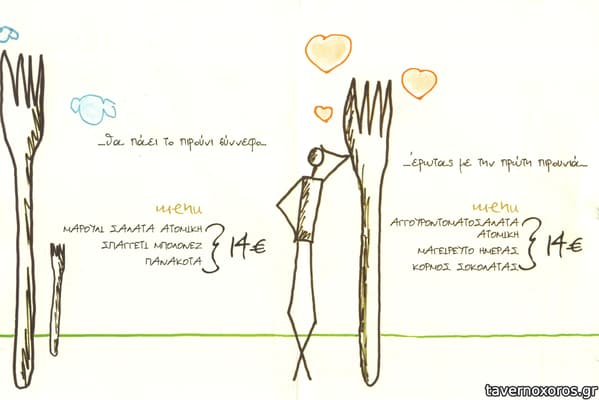 ...θα πάει το πιρούνι σύννεφο...
menu
ΜΑΡΟΥΛΙ ΣΑΛΑΤΑ ΑΤΟΜΙΚΗ
ΣΠΑΓΓΕΤΙ ΜΠΟΛΟΝΕΖ
ΠΑΝΑΚΟΤΑ
14€
...έρωτας με την πρώτη πιρουνιά...
menu
ΑΓΓΟΥΡΟΝΤΟΜΑΤΟΣΑΛΑΤΑ
ΑΤΟΜΙΚΗ
ΜΑΓΕΙΡΕΥΤΟ ΗΜΕΡΑΣ
ΚΟΡΜΟΣ ΣΟΚΟΛΑΤΑΣ
14€
tavernoxoros.gr